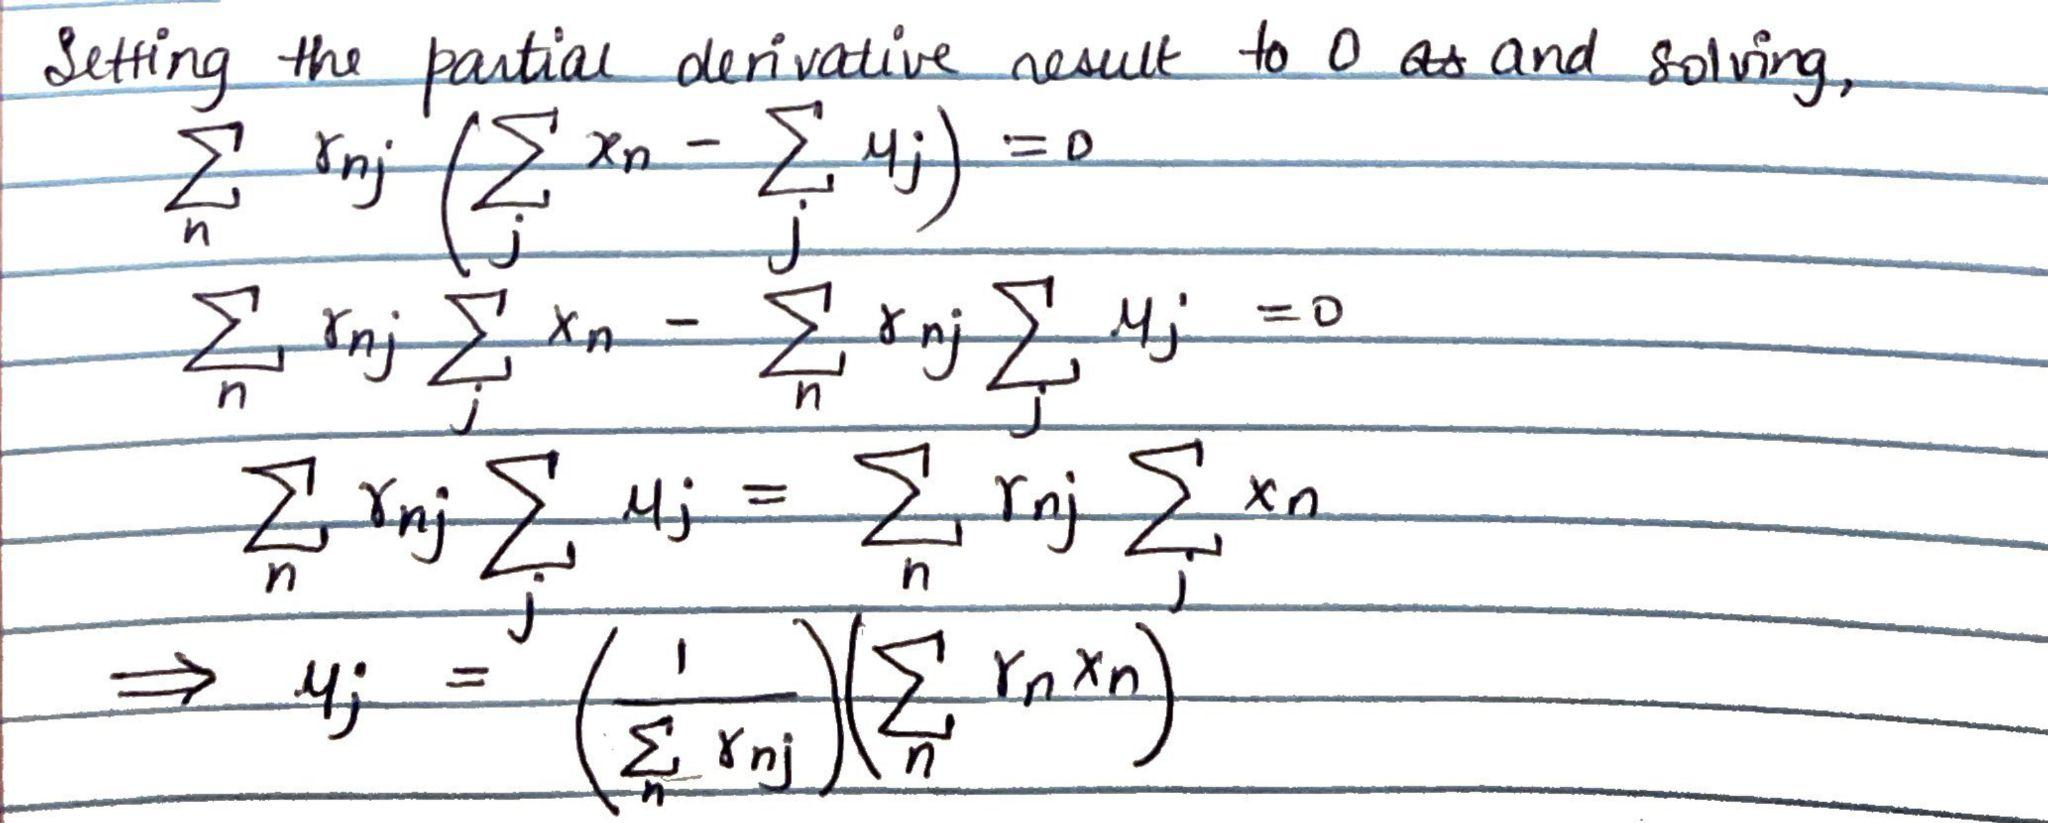 Setting the partial derivative result to 0 as and solving,
∑_n γ_nj (∑_j x_n − ∑_j μ_j) = 0
∑_n γ_nj ∑_j x_n − ∑_n γ_nj ∑_j μ_j = 0
∑_n γ_nj ∑_j μ_j = ∑_n γ_nj ∑_j x_n
⟹ μ_j = (1 / ∑_n γ_nj) (∑_n γ_n x_n)